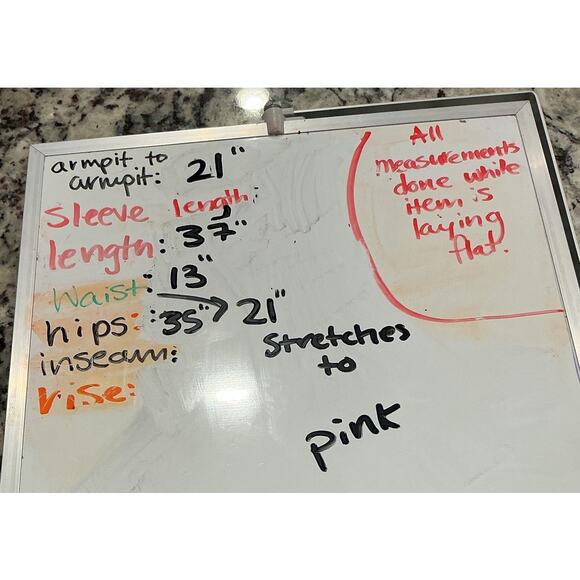 armpit to
armpit: 21"
Sleeve length:
length: 37"
Waist: 13"
hips: 35" 21"
Stretches
to
inseam:
rise:
pink
All
measurements
done while
item is
laying
flat.